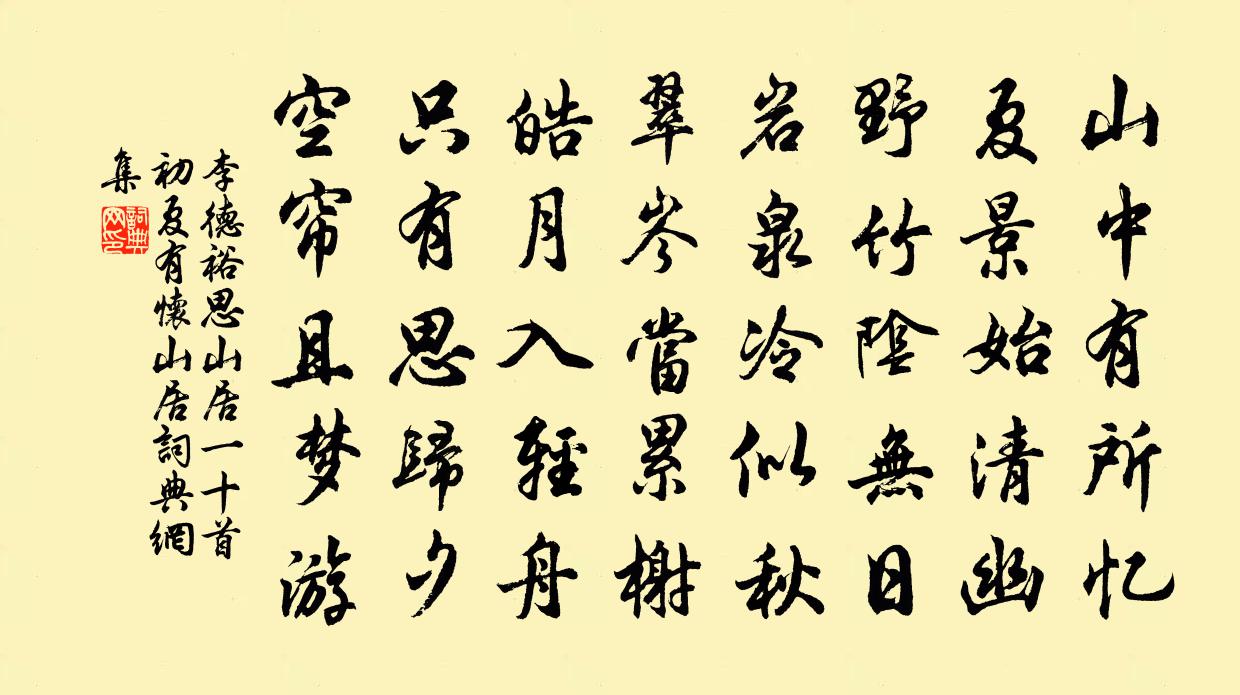 山中有所忆
夏景始清幽
野竹陰無日
岩泉冷似秋
翠岑當累榭
皓月入輕舟
只有思歸夕
空帘且梦游
李德裕思山居一十首
初夏有懷山居詞典網
集
詞典
网印